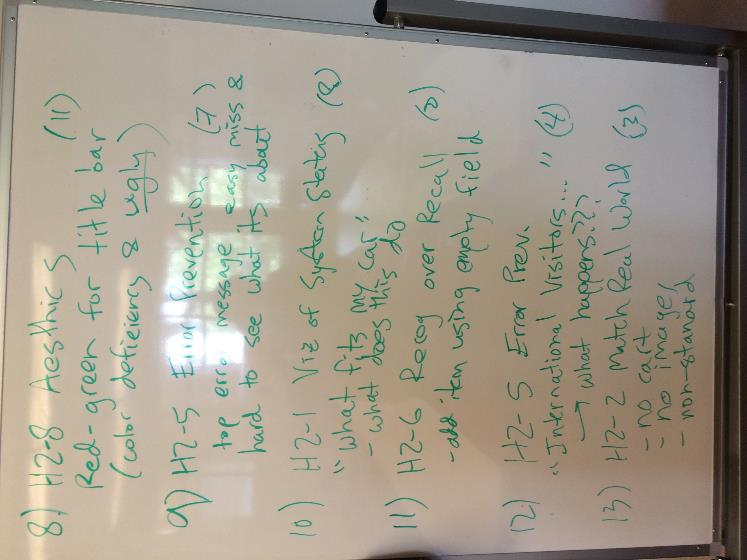 8) H2-8 Aesthics (11)
Red-green for title bar
(color deficiency & ugly)
9) H2-5 Error Prevention (7)
top error message easy miss &
hard to see what its about
10) H2-1 Viz of System Status (2)
"what fits my car"
- what does this do
11) H2-6 Recog over Recall
- add item using empty field
12) H2-5 Error Prev.
"International Visitors..." (4)
→ what happens??
13) H2-2 Match Real World (3)
- no cart
- no image,
- non-stanard